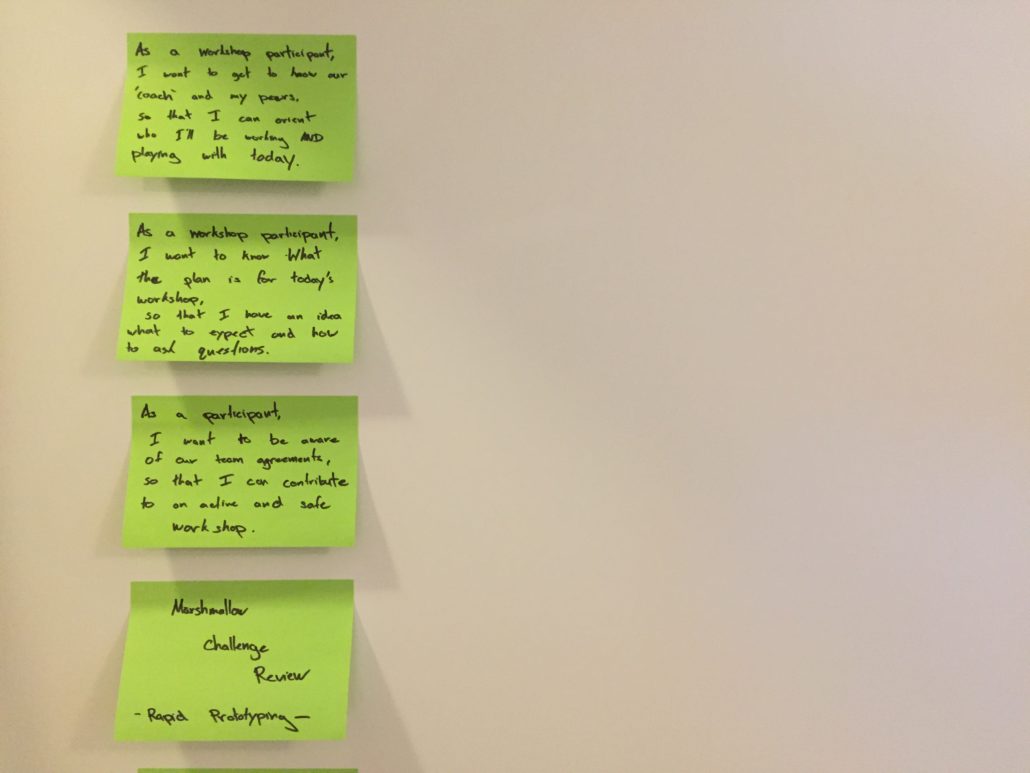 As a workshop participant,
I want to get to know our
'coach' and my peers,
so that I can orient
who I'll be working AND
playing with today.
As a workshop participant,
I want to know What
the plan is for today's
workshop,
so that I have an idea
what to expect and how
to ask questions.
As a participant,
I want to be aware
of our team agreements,
so that I can contribute
to an active and safe
workshop.
Marshmallow
Challenge
Review
- Rapid Prototyping -